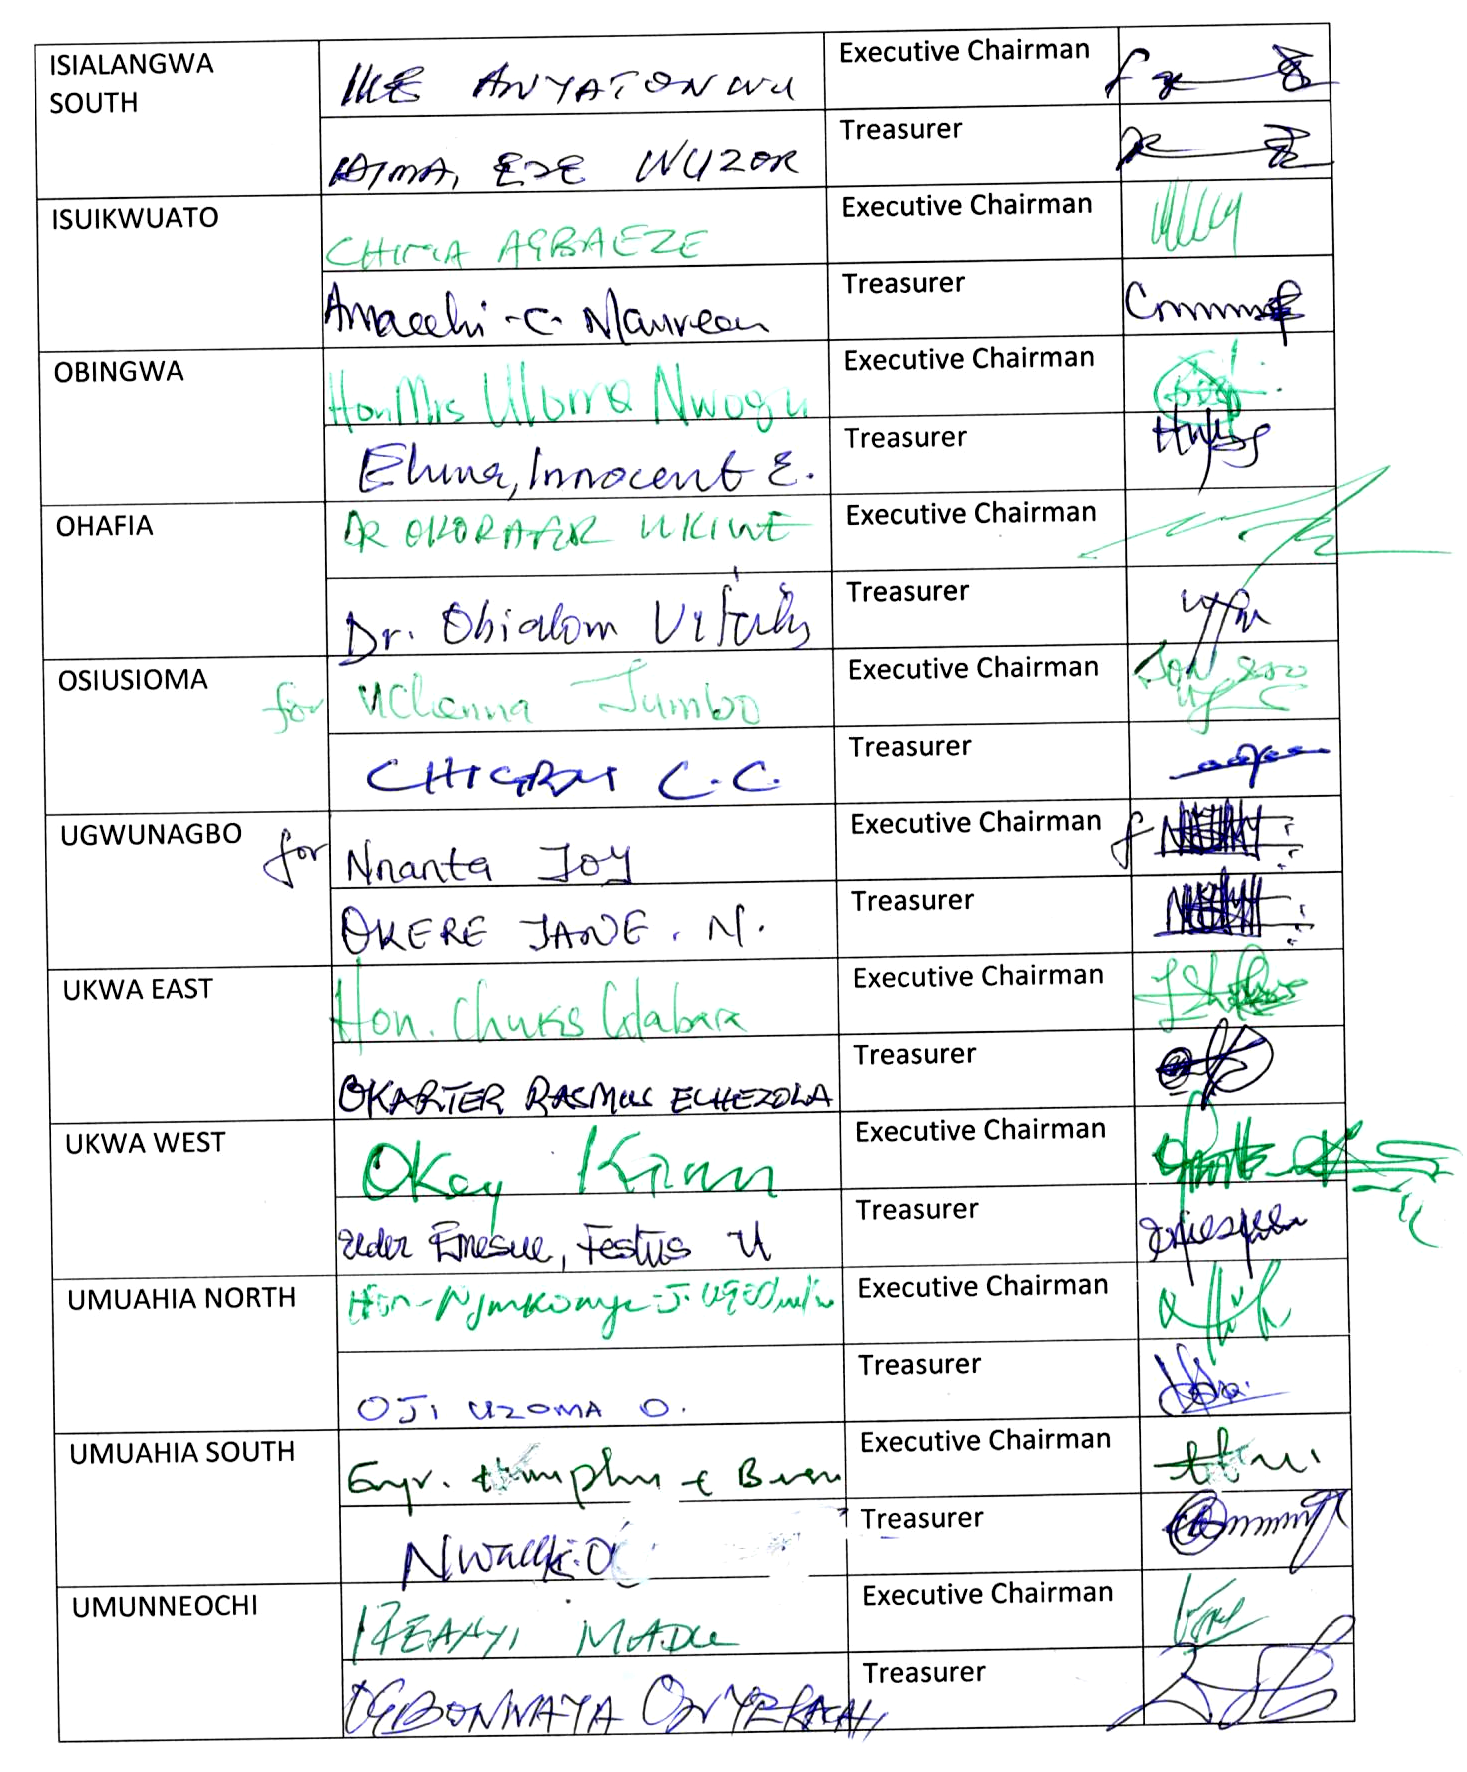 ISIALANGWA
SOUTH
IKE ANYATONWU
Executive Chairman
EZE WUZOR
Treasurer
ISUIKWUATO
CHIMA AGBAEZE
Executive Chairman
Amaechi - C. Maureen
Treasurer
OBINGWA
Hon Mrs Uloma Nwogu
Executive Chairman
Ehuna, Innocent E.
Treasurer
OHAFIA
DR OKORAFOR UKIWE
Executive Chairman
Dr. Obialom
Treasurer
OSIUSIOMA
for Uchenna Jumbo
Executive Chairman
CHIGBU C.C.
Treasurer
UGWUNAGBO
for Nnanta JOY
Executive Chairman
OKERE JANE. N.
Treasurer
UKWA EAST
Hon. Chuks
Executive Chairman
OKARTER RASMUS ECHEZOLA
Treasurer
UKWA WEST
Okey Kanu
Executive Chairman
Festus U
Treasurer
UMUAHIA NORTH
Hon-
Executive Chairman
OJI UZOMA O.
Treasurer
UMUAHIA SOUTH
Engr.
Executive Chairman
Treasurer
UMUNNEOCHI
IFEANYI MADU
Executive Chairman
OGBONNAYA ONYEKACHI
Treasurer